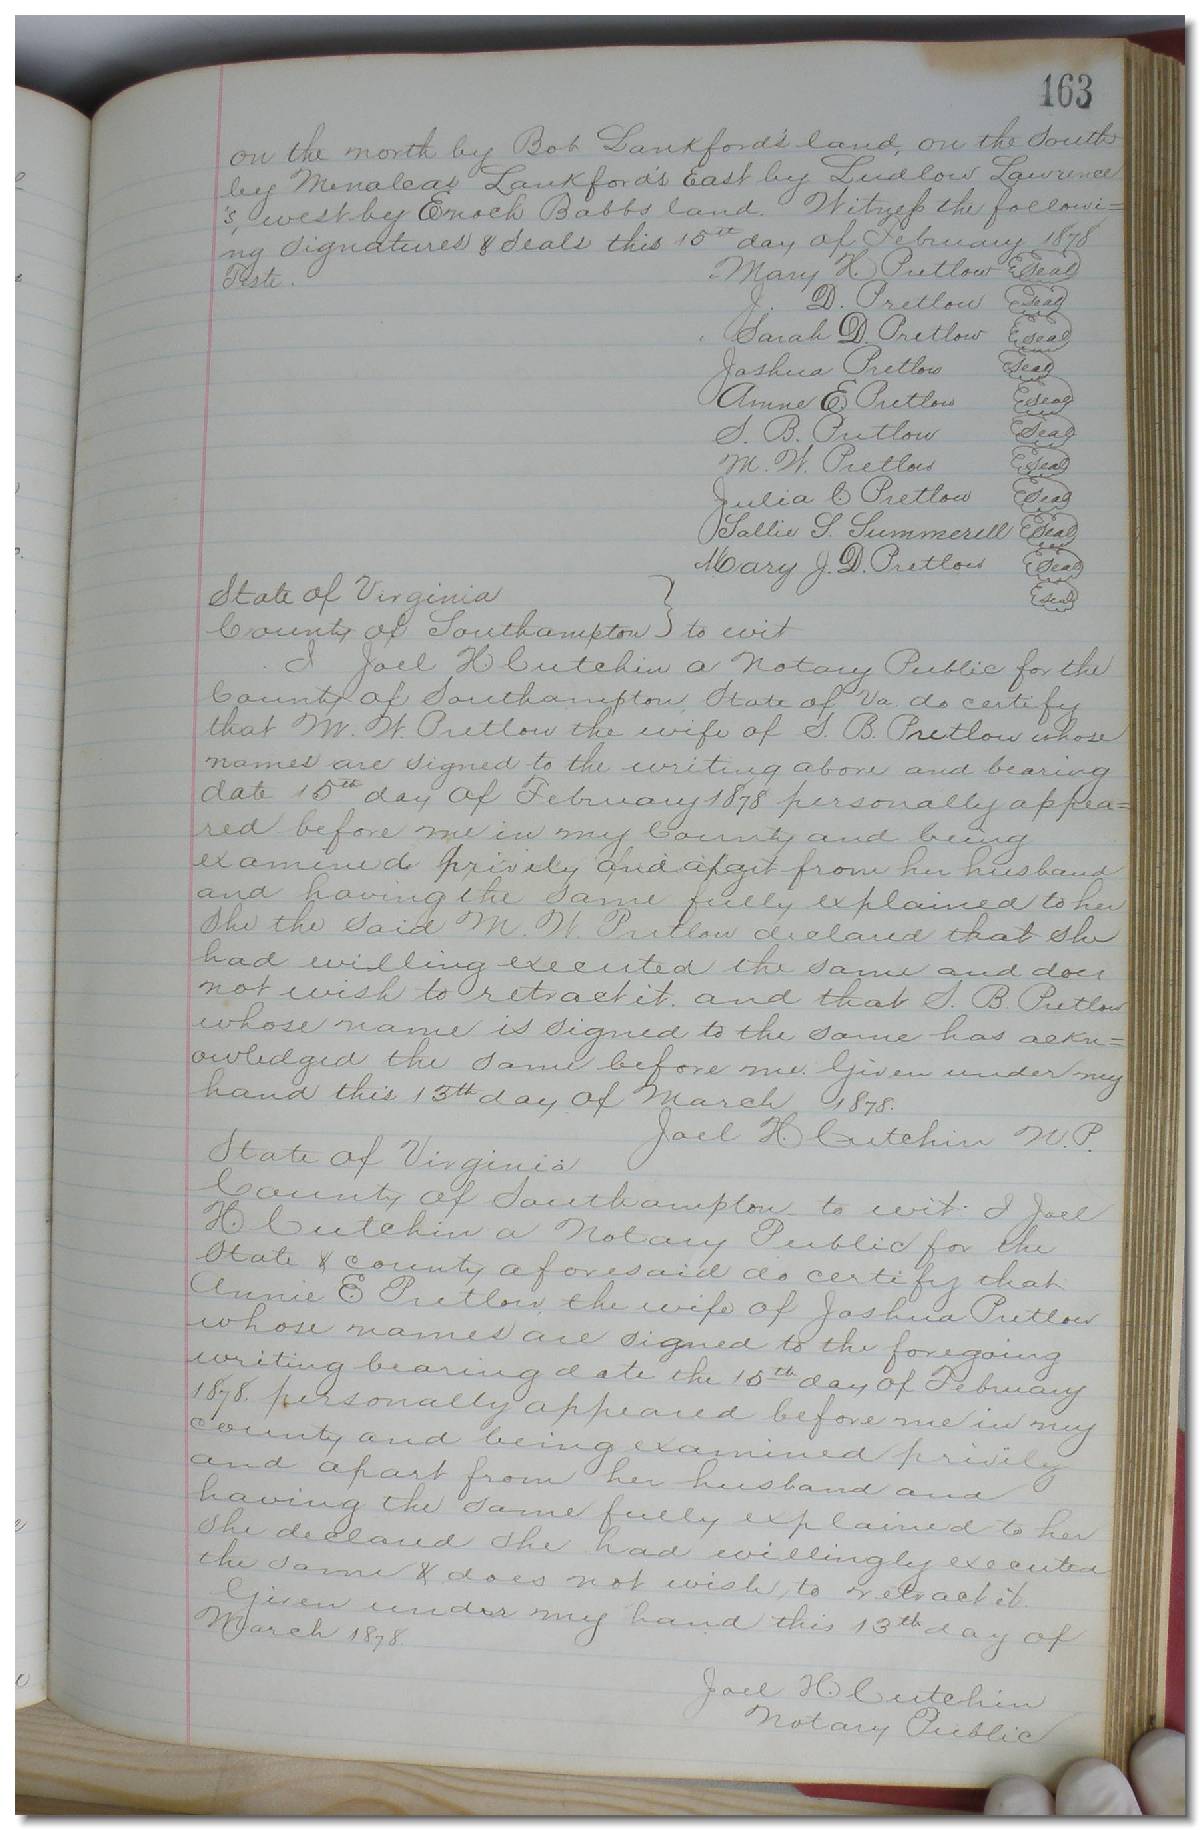 163
on the north by Bob Lankford's land, on the South
by Menalcas Lankford's East by Ludlow Lawrence
's, west by Enoch Babbs land. Witness the followi=
ng signatures & Seals this 15th day of February 1878
Teste.
Mary H. Pretlow Seal
J. D. Pretlow Seal
Sarah D. Pretlow Seal
Joshua Pretlow Seal
Annie E Pretlow Seal
S. B. Pretlow Seal
M. W. Pretlow Seal
Julia C Pretlow Seal
Sallie S. Summerell Seal
Mary J. D. Pretlow Seal
Seal
State of Virginia
County of Southampton } to wit
I Joel H Cutchin a Notary Public for the
County of Southampton, State of Va do certify
that M. W. Pretlow the wife of S. B. Pretlow whose
names are signed to the writing above and bearing
date 15th day of February 1878 personally appea=
red before me in my County and being
examined privily and apart from her husband
and having the same fully explained to her
She the said M. W. Pretlow declared that she
had willing executed the same and does
not wish to retract it. and that S. B. Pretlow
whose name is signed to the same has ackn=
owledged the same before me. Given under my
hand this 13th day of March 1878.
Joel H. Cutchin N. P.
State of Virginia
County of Southampton to wit. I Joel
H. Cutchin a Notary Public for the
State & county aforesaid do certify that
Annie E. Pretlow, the wife of Joshua Pretlow
whose names are signed to the foregoing
writing bearing date the 15th day of February
1878. personally appeared before me in my
county and being examined privily
and apart from her husband and
having the same fully explained to her
she declared she had willingly executed
the same & does not wish to retract it.
Given under my hand this 13th day of
March 1878.
Joel H. Cutchin
Notary Public